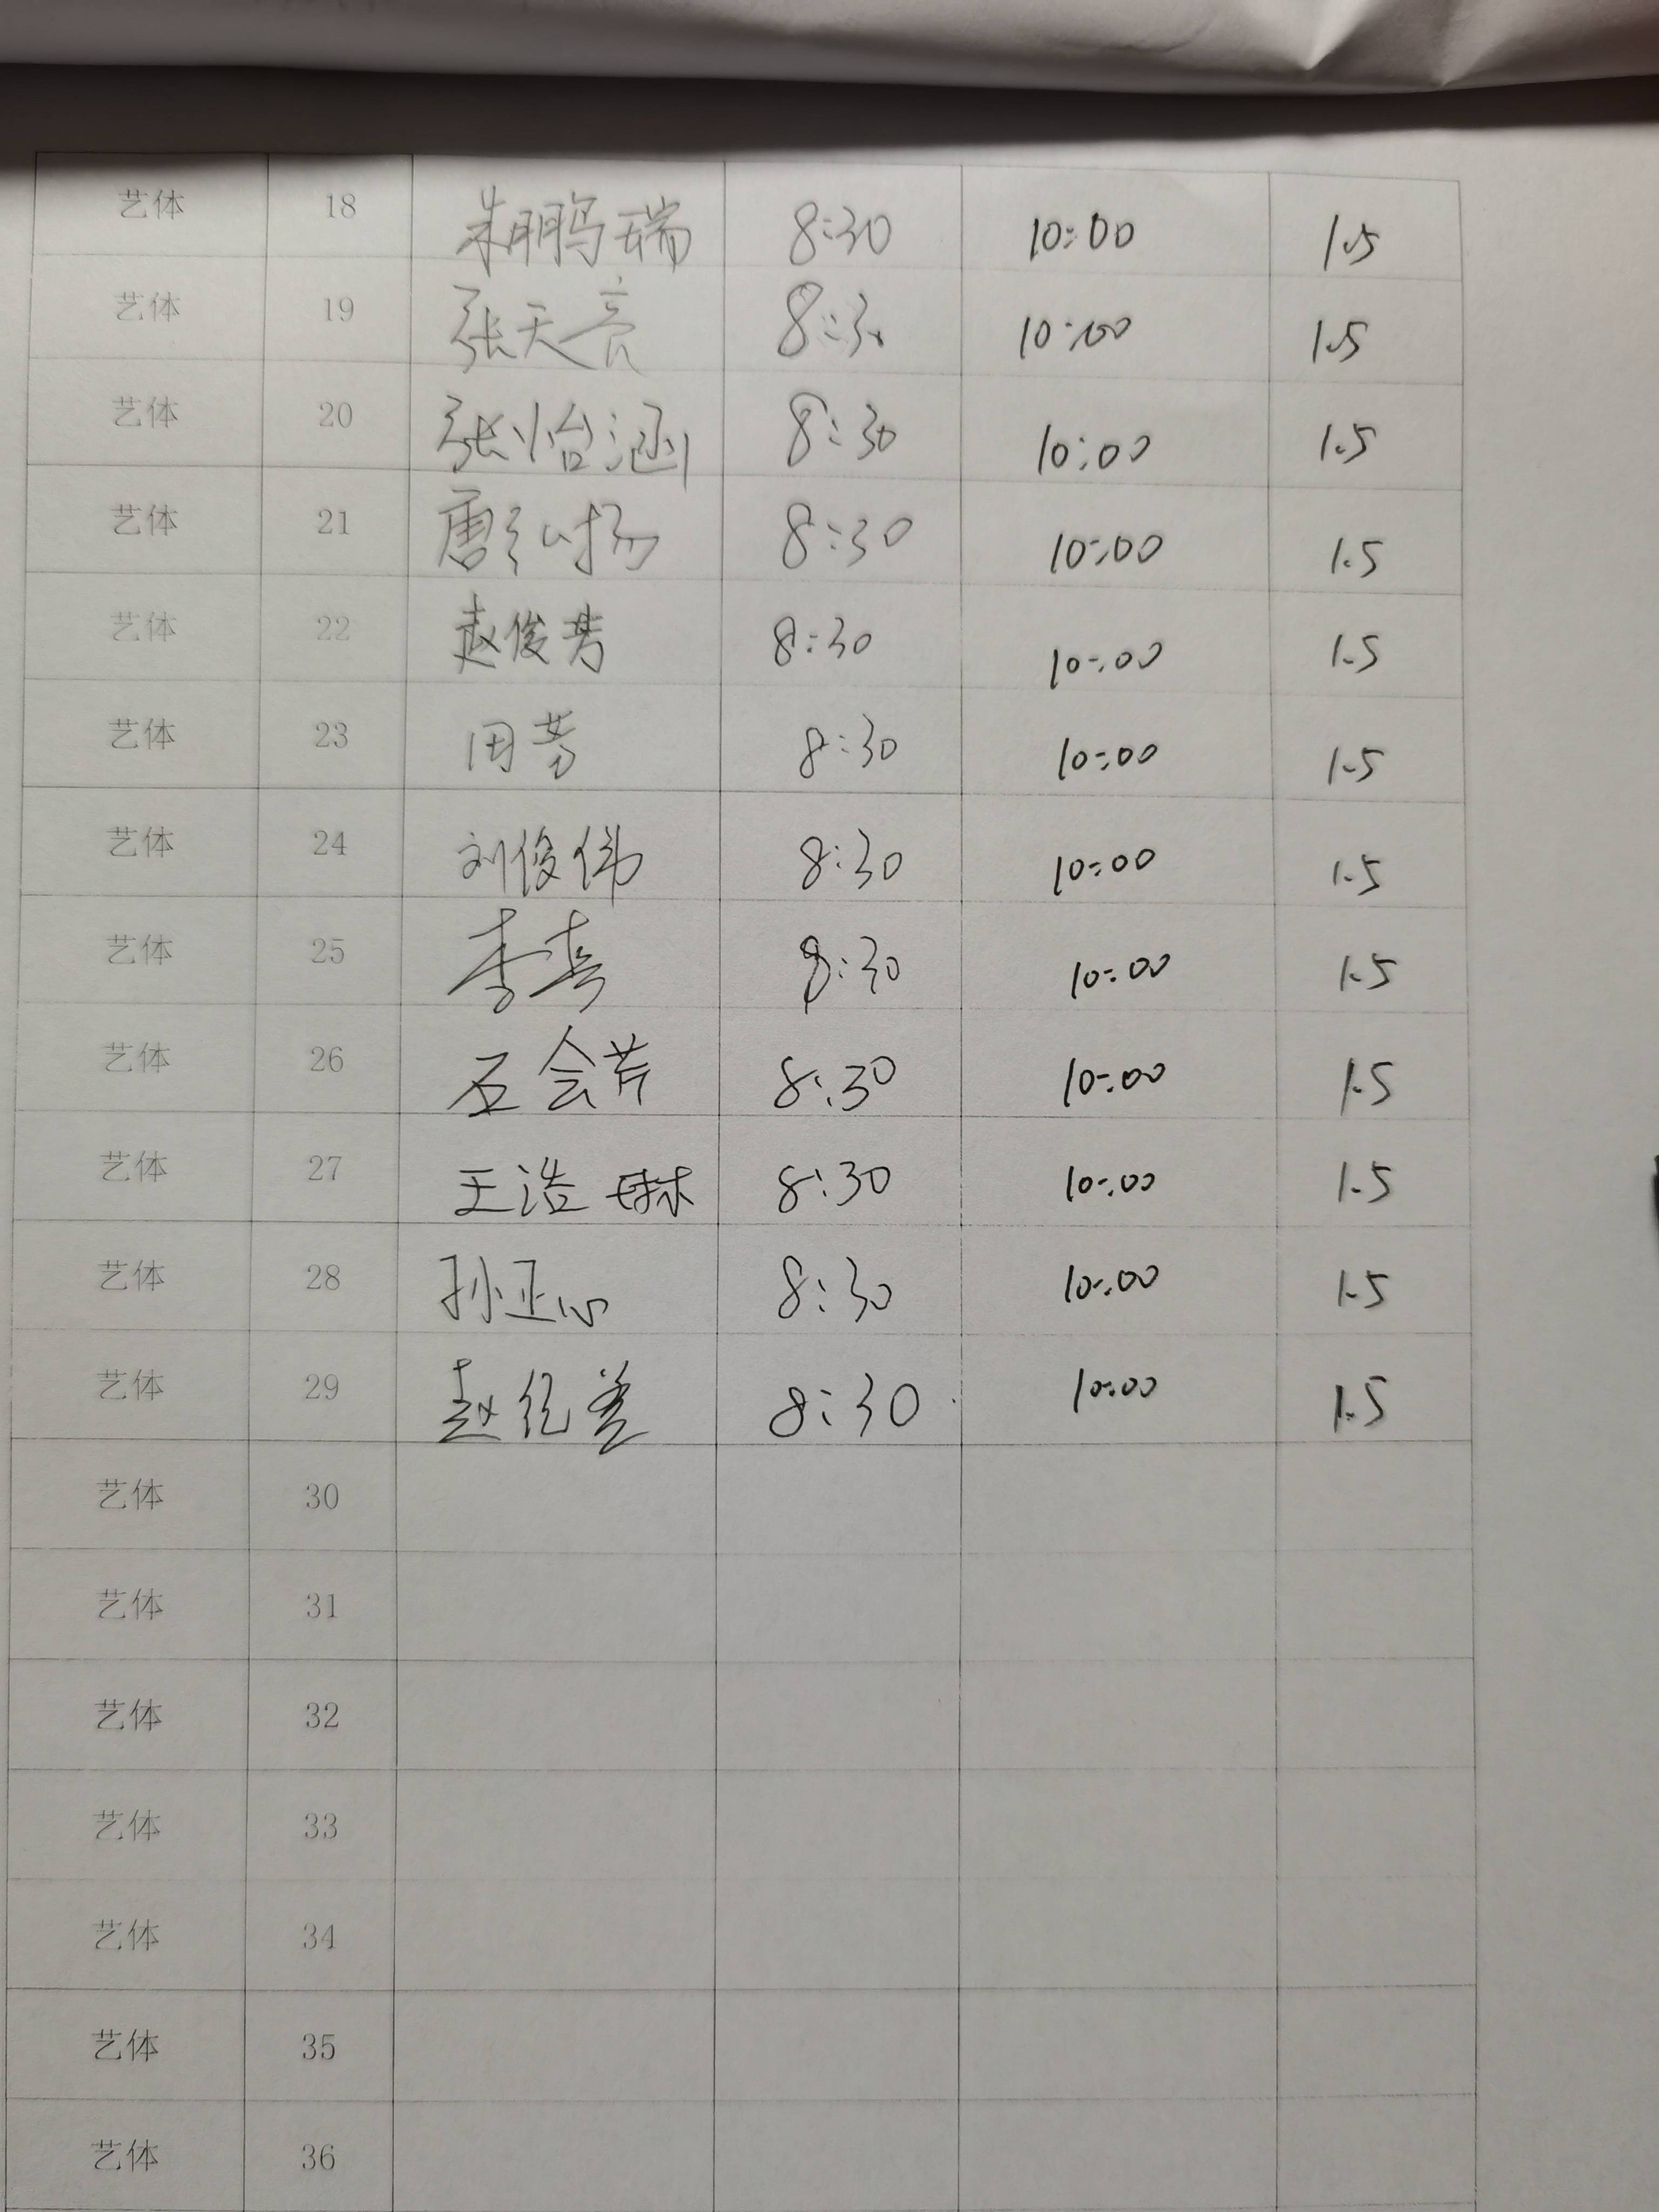 艺体 18 朱鹏瑞 8:30 10:00 1.5
艺体 19 张天亮 8:30 10:00 1.5
艺体 20 张怡涵 8:30 10:00 1.5
艺体 21 唐 8:30 10:00 1.5
艺体 22 赵俊芳 8:30 10:00 1.5
艺体 23 田芳 8:30 10:00 1.5
艺体 24 刘俊伟 8:30 10:00 1.5
艺体 25 李 8:30 10:00 1.5
艺体 26 石会芹 8:30 10:00 1.5
艺体 27 王浩琳 8:30 10:00 1.5
艺体 28 孙正心 8:30 10:00 1.5
艺体 29 赵 8:30 10:00 1.5
艺体 30
艺体 31
艺体 32
艺体 33
艺体 34
艺体 35
艺体 36